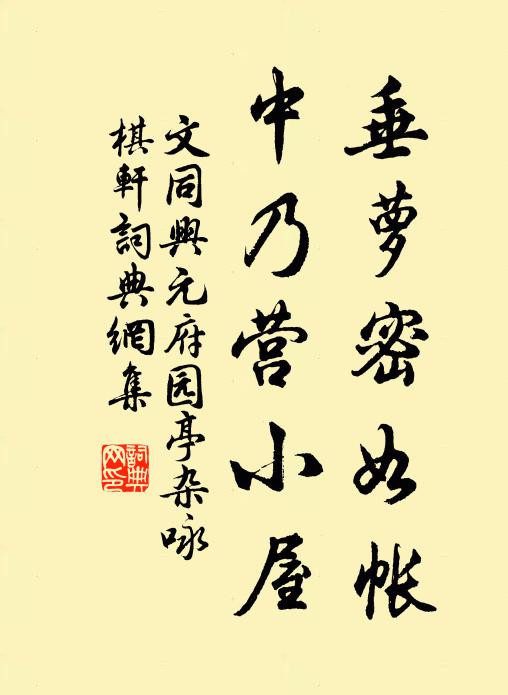 垂萝密如帐
中乃营小屋
文同興元府园亭杂咏
棋軒詞典網集
詞典网印